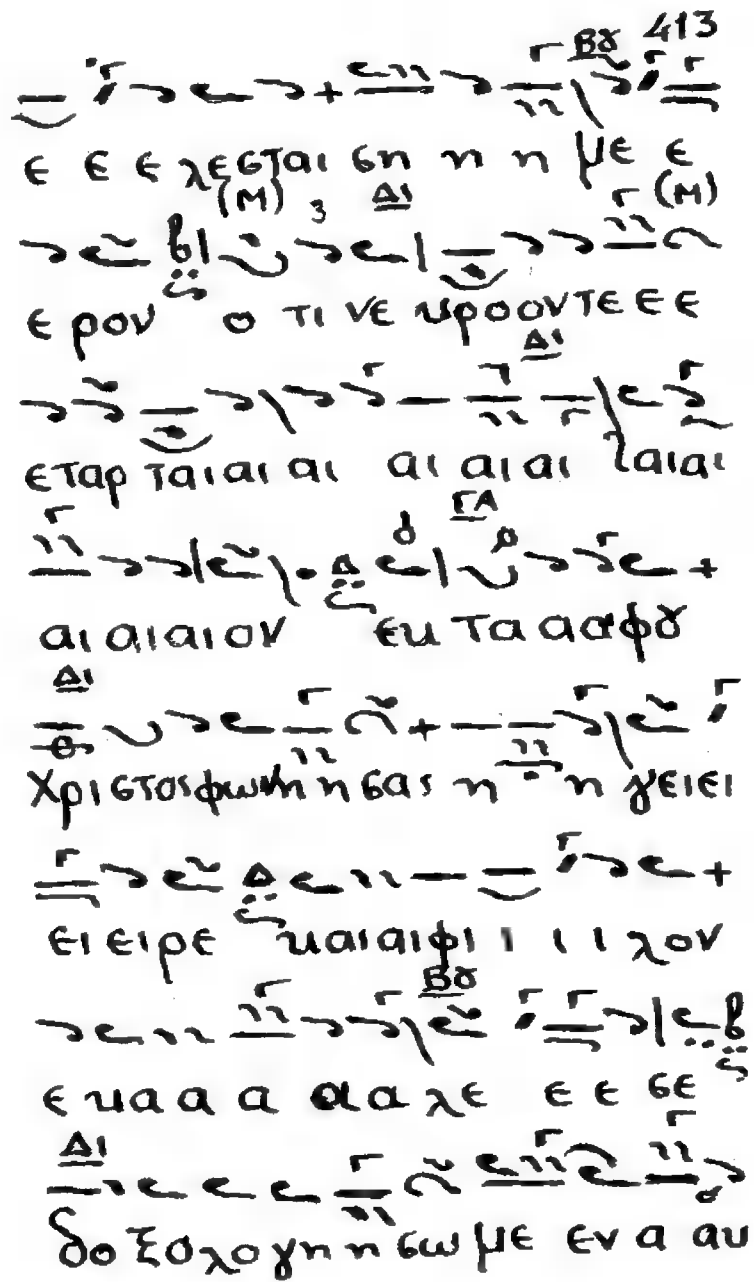 413
Βȣ
ε ε ε λεσται ση η η με ε
(Μ) 3 Δι (Μ)
ε ρον ο τι νε κροοντε ε ε
Δι
εταρ ταιαι αι αι αιαι ταιαι
ΓΑ
αι αιαιον εκ τα ααφȣ
Δι
Χριστοςφωνη ησας η η γειει
ει ειρε και αιφι ι ι ι λον
Βȣ
ε κα α α α α λε ε ε σε
Δι
δο ξολο γη η σω με εν α αυ